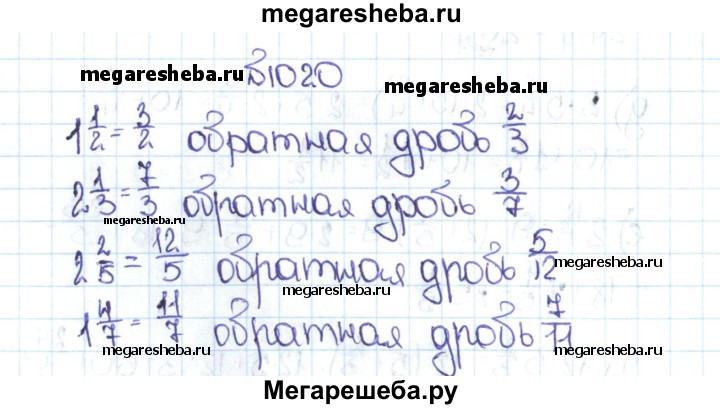 megaresheba.ru
megaresheba.ru №1020 megaresheba.ru
1 1/2 = 3/2 обратная дробь 2/3
2 1/3 = 7/3 обратная дробь 3/7
megaresheba.ru
2 2/5 = 12/5 обратная дробь 5/12
megaresheba.ru megaresheba.ru
1 4/7 = 11/7 обратная дробь 7/11
megaresheba.ru
Мегарешеба.ру